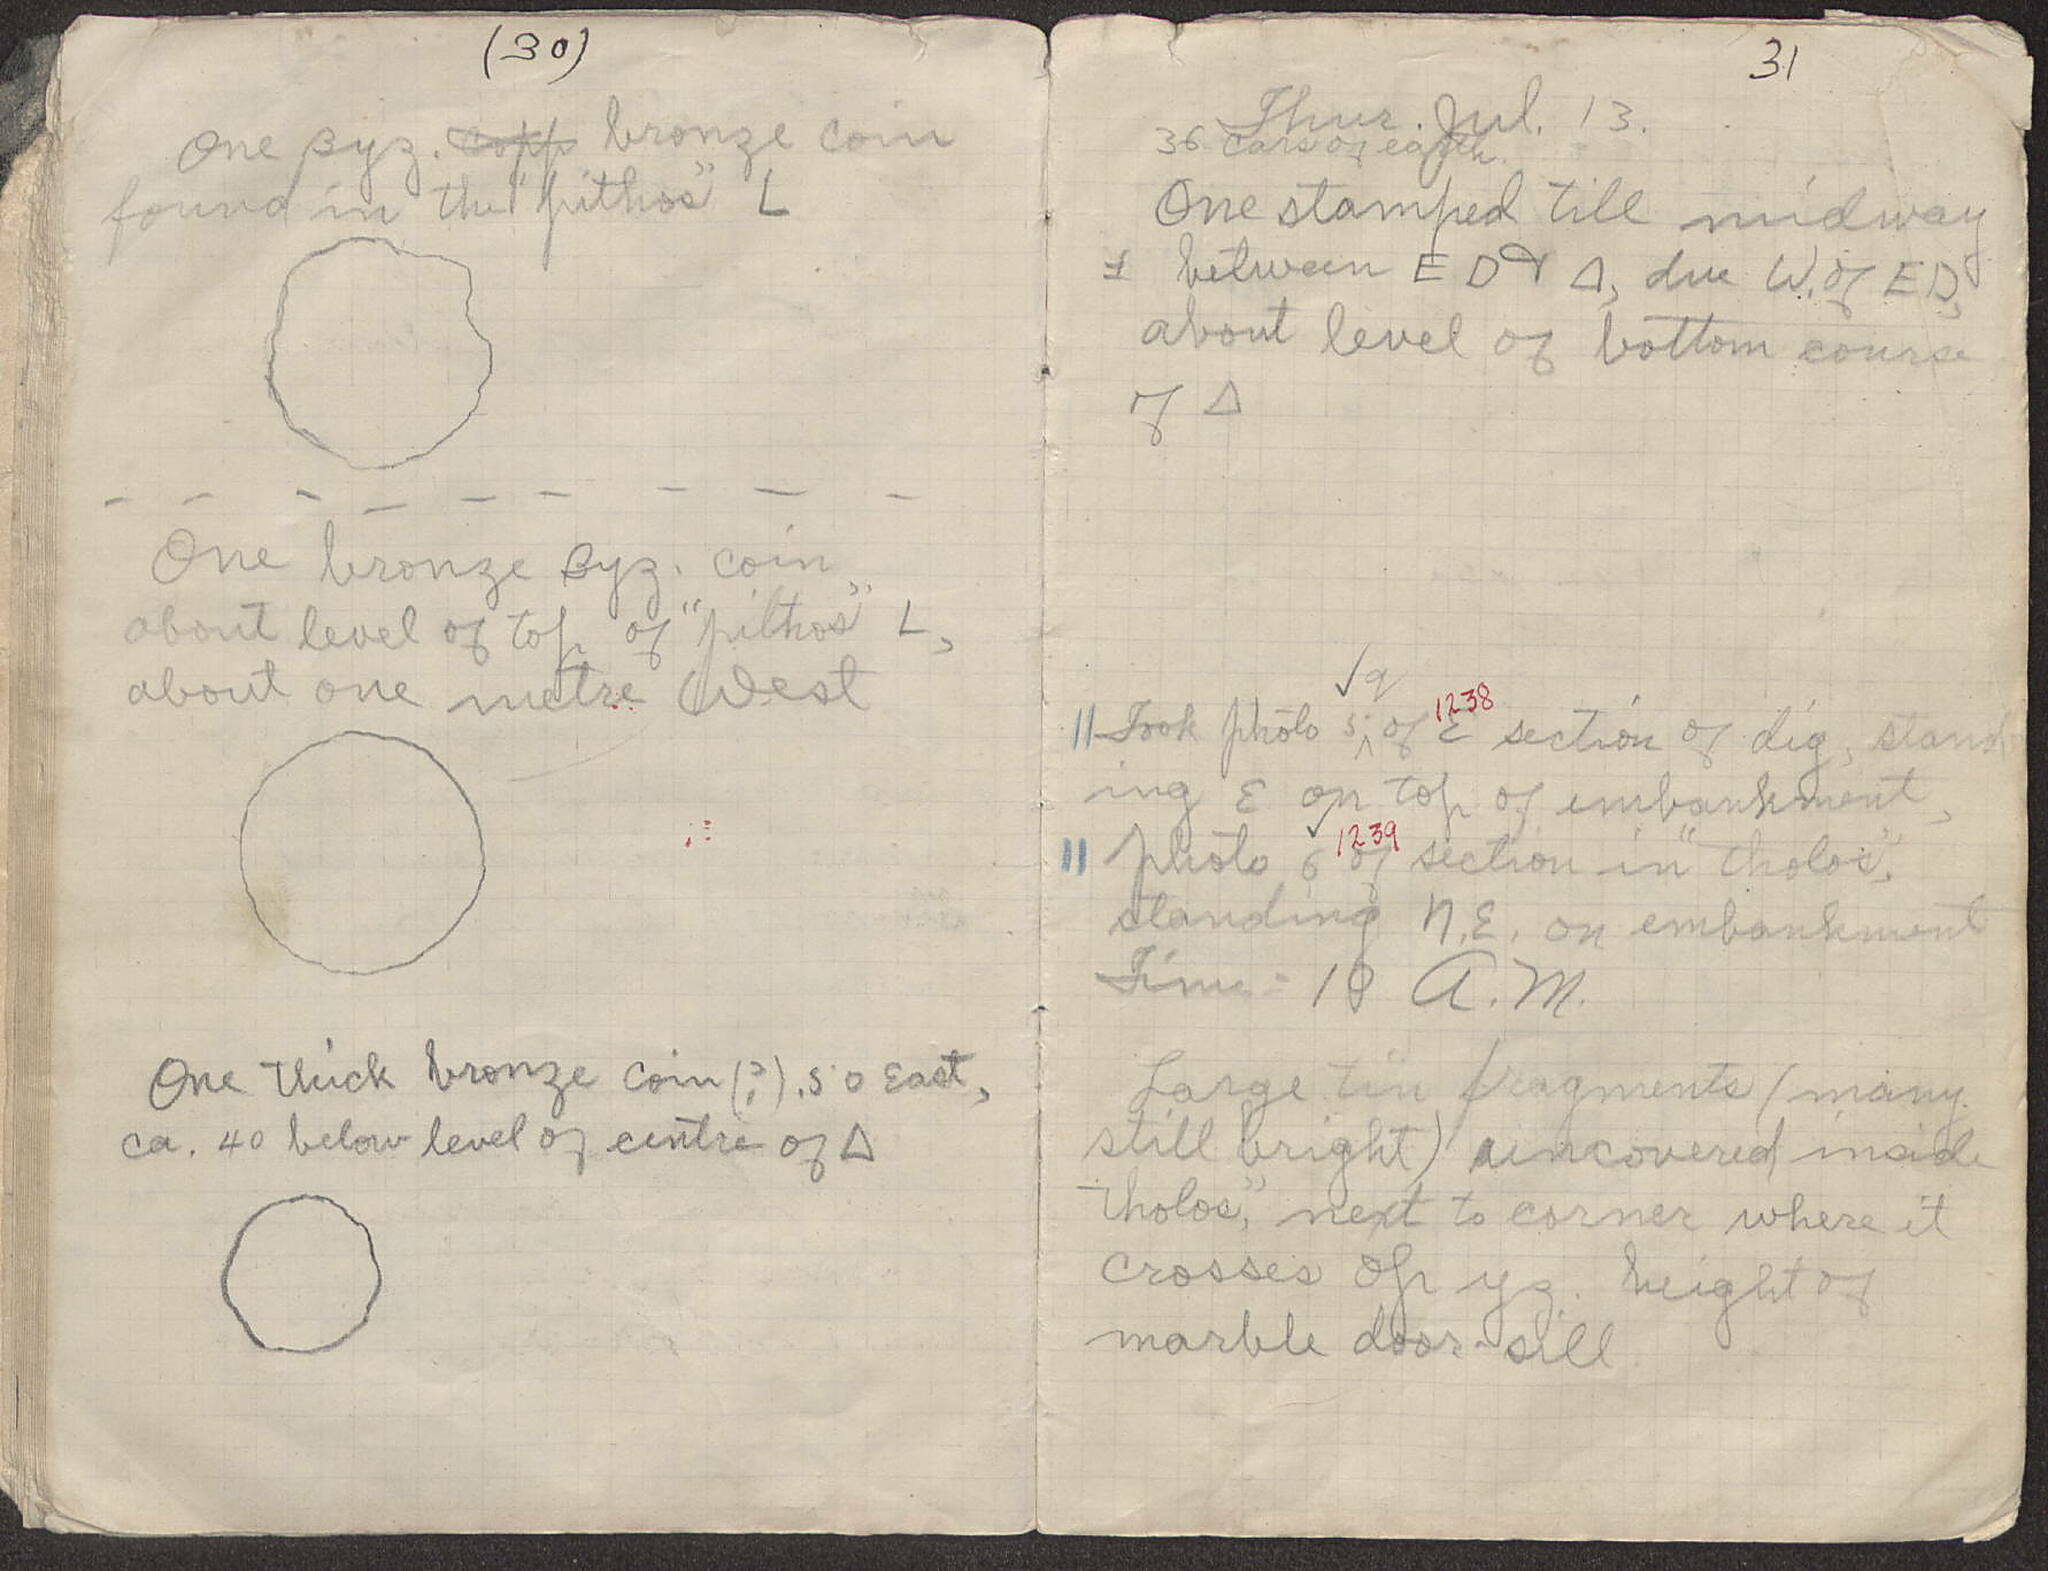 (30)
One Byz. copp bronze coin
found in the "pithos" L
One bronze Byz. coin
about level of top of "pithos" L,
about one metre West
One thick bronze coin (?) .50 East,
ca. 40 below level of centre of Δ
31
Thur. Jul. 13.
36 cars of earth.
One stamped till midway
between E D & Δ, due W. of E D,
about level of bottom course
of Δ
√ a
1238
|| Took photo 5 of E section of dig, stand
ing E on top of embankment,
1239
|| photo 6 of section in "tholos",
standing N.E. on embankment
Time - 10 A.M.
Large tin fragments (many
still bright) uncovered inside
tholos", next to corner where it
crosses Op yz. height of
marble door-sill